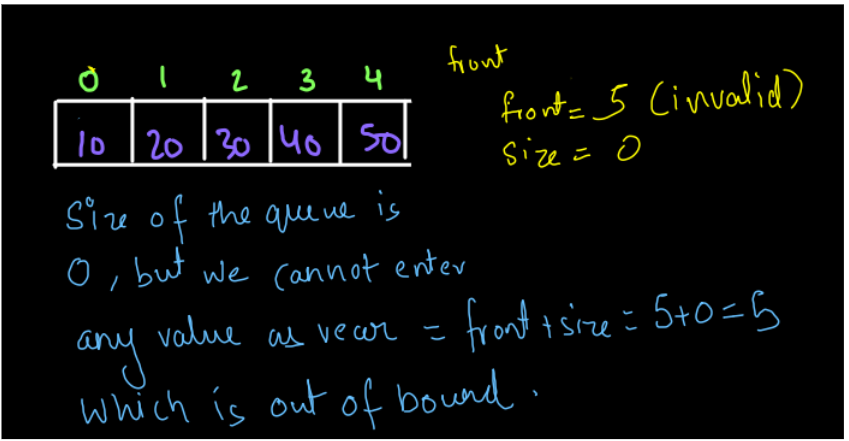 0 1 2 3 4
10 20 30 40 50
front
front = 5 (invalid)
size = 0
Size of the queue is
0, but we cannot enter
any value as rear = front + size = 5+0=5
which is out of bound.